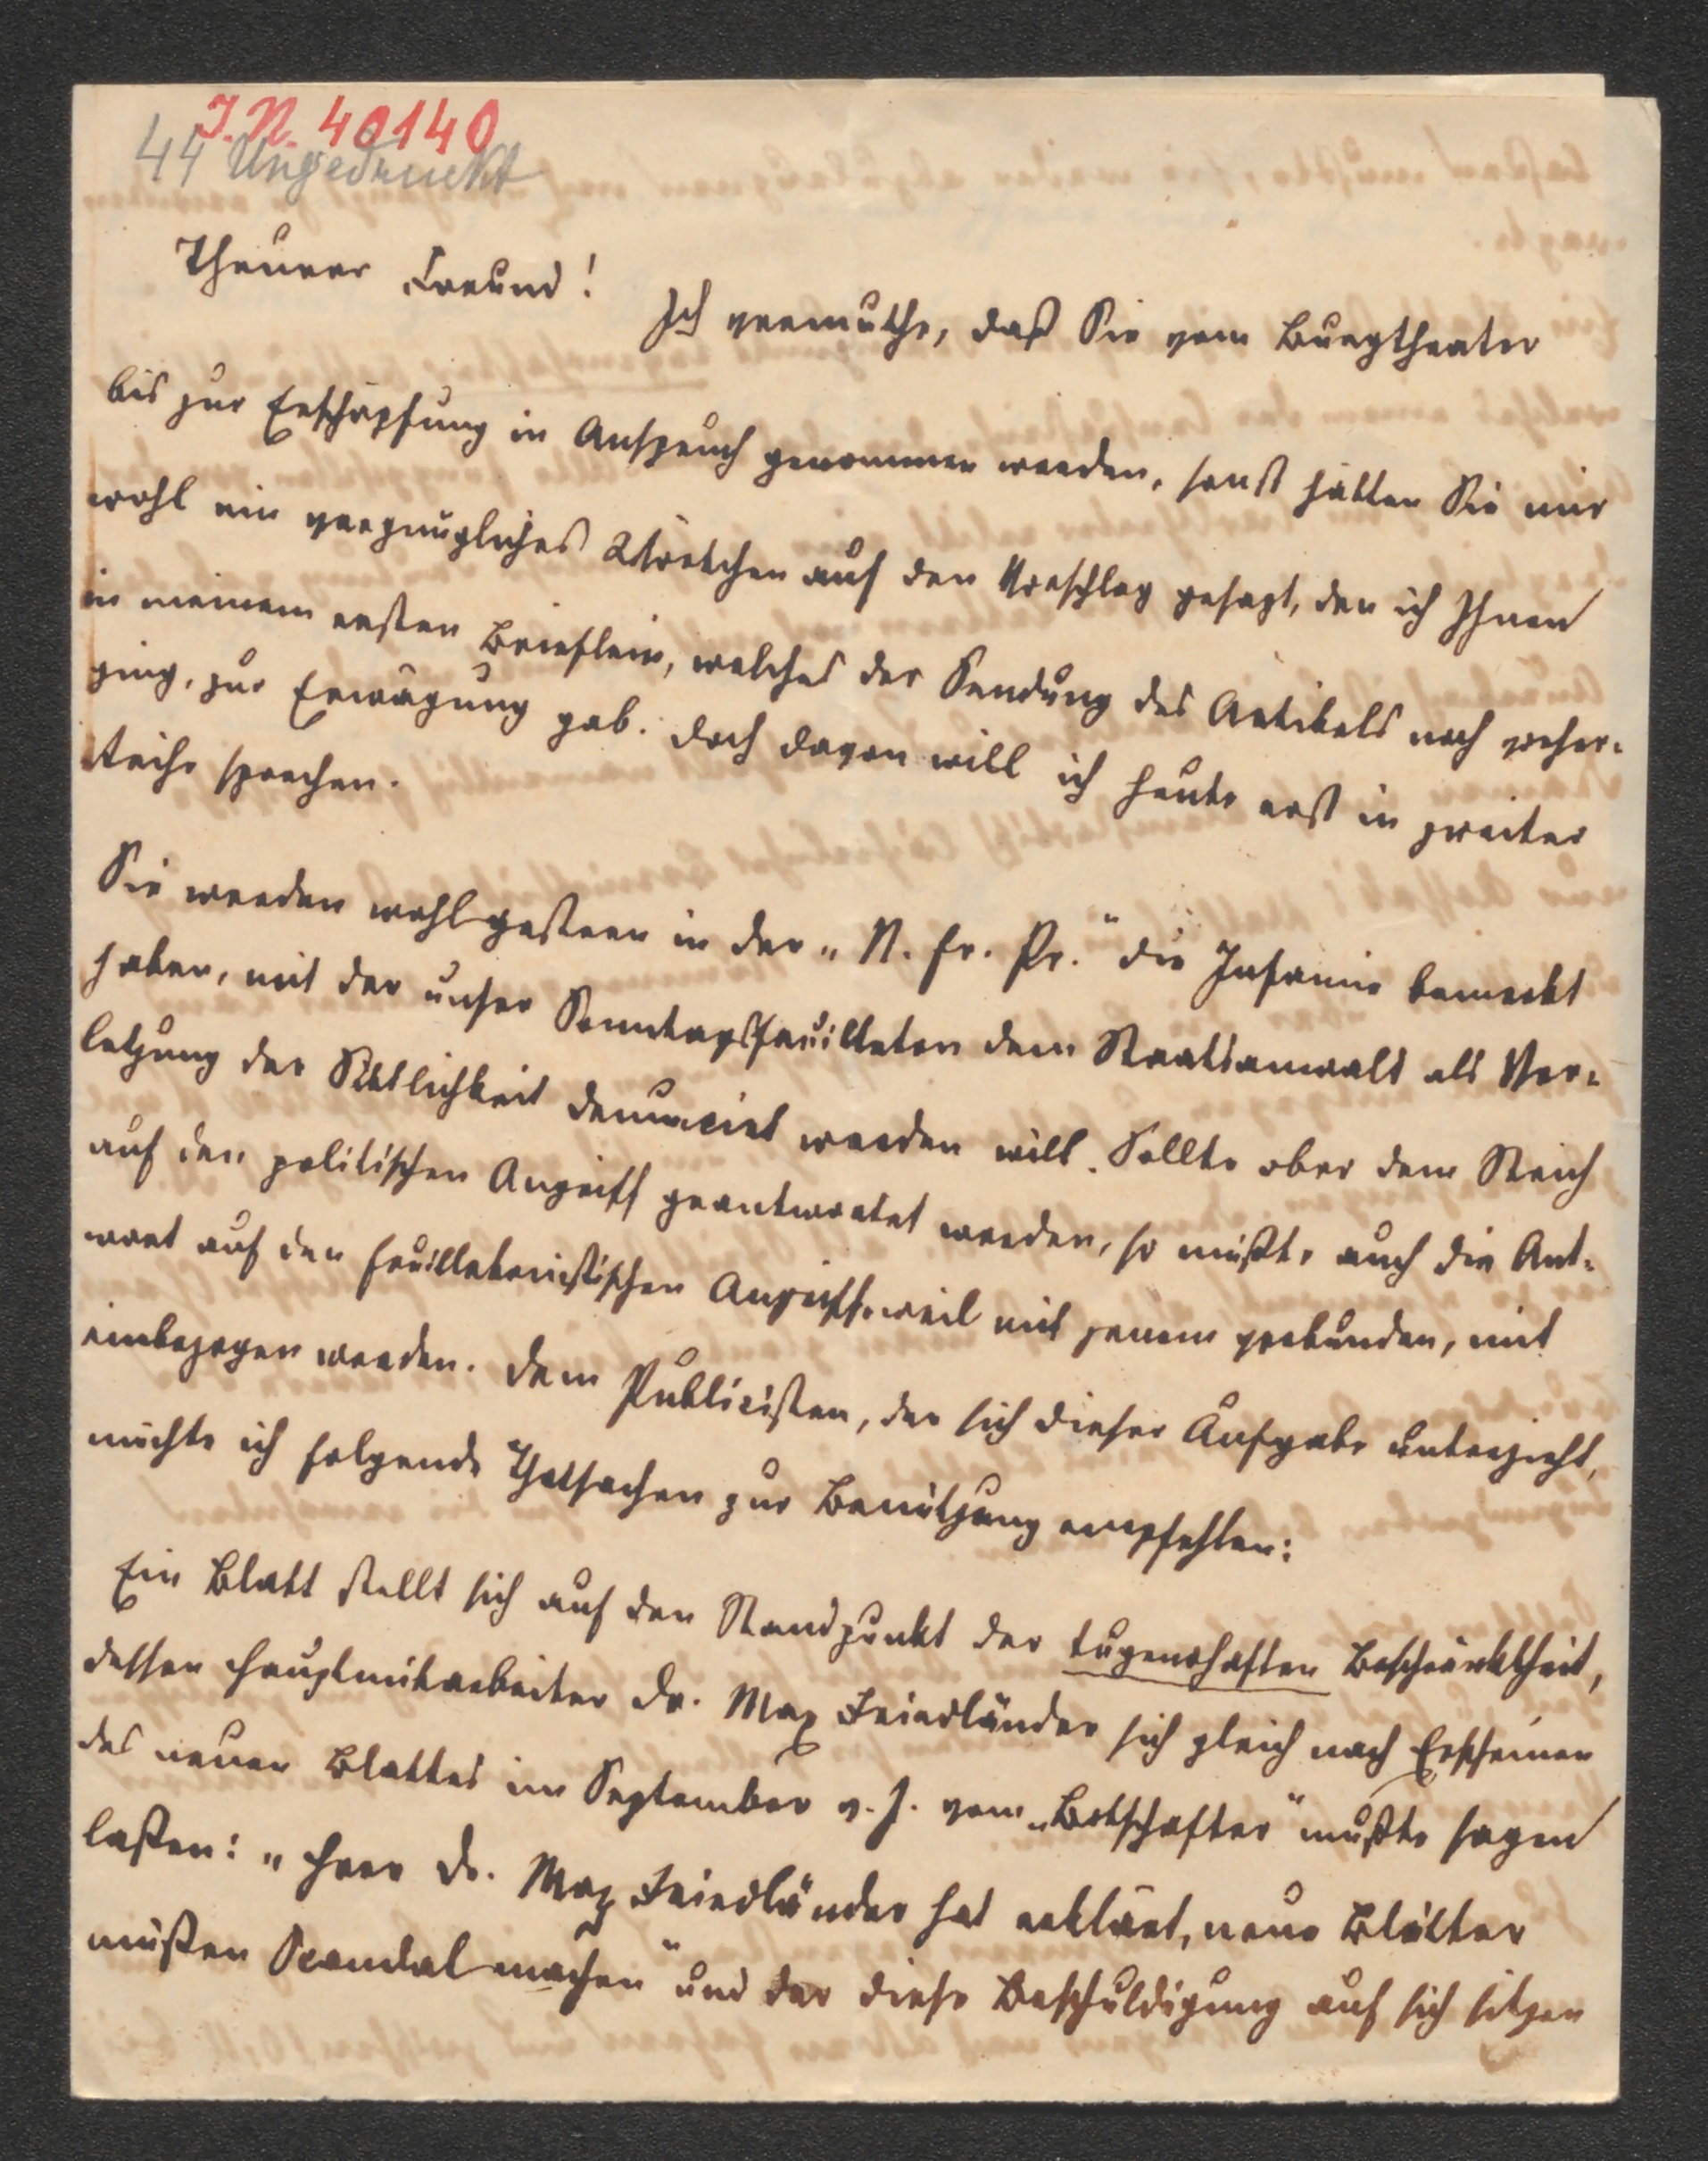 J. N. 40140
44 Ungedruckt
Theurer Freund!
Ich vermuthe, daß Sie vom Burgtheater
bis zur Erschöpfung in Anspruch genommen werden, sonst hätten Sie mir
wohl ein vergnügliches Wörtchen auf den Vorschlag gesagt, den ich Ihnen
in meinem ersten Brieflein, welches der Sendung des Artikels noch vorher-
ging, zur Erwägung gab. Doch davon will ich heute erst in zweiter
Reihe sprechen.
Sie werden wohl gestern in der „N. fr. Pr." die Infamie bemerkt
haben, mit der unser Sonntagsfeuilleton dem Staatsanwalt als Ver-
letzung der Sittlichkeit denuncirt werden will. Sollte aber dem Streich
auf den politischen Angriff geantwortet werden, so müßte auch die Ant-
wort auf den feuilletonistischen Angriff, weil mit jenem verbunden, mit
einbezogen werden. Dem Publicisten, der sich dieser Aufgabe unterzieht,
möchte ich folgende Thatsachen zur Benützung empfehlen:
Ein Blatt stellt sich auf den Standpunkt der tugendhaften Beschränktheit,
dessen Hauptmitarbeiter Dr. Max Friedländer sich gleich nach Erscheinen
des neuen Blattes im September v. J. vom „Botschafter" mußte sagen
laßen: „Herr Dr. Max Friedländer hat erklärt, neue Blätter
müßen Scandal machen" und der diese Beschuldigung auf sich sitzen